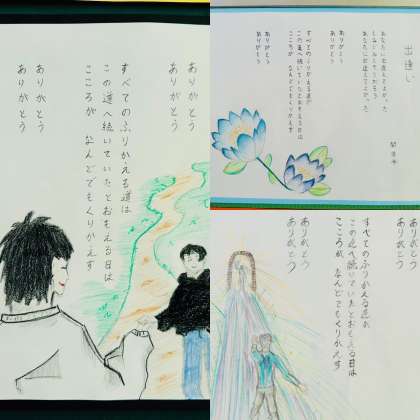 ありがとう
ありがとう
すべてのふりかえる道は
この道へ続いていたとおもえる日は
こころが なんどでもくりかえす
ありがとう
ありがとう
出逢い
あなたに出逢えてよかった
あなたに出逢えてよかった
ありがとう
ありがとう
すべてのふりかえる道が
この道へ続いていたとおもえる日は
こころが なんどでもくりかえす
ありがとう
ありがとう
ありがとう
ありがとう
すべてのふりかえる道が
この道へ続いていたとおもえる日は
こころが なんどでもくりかえす
ありがとう
ありがとう